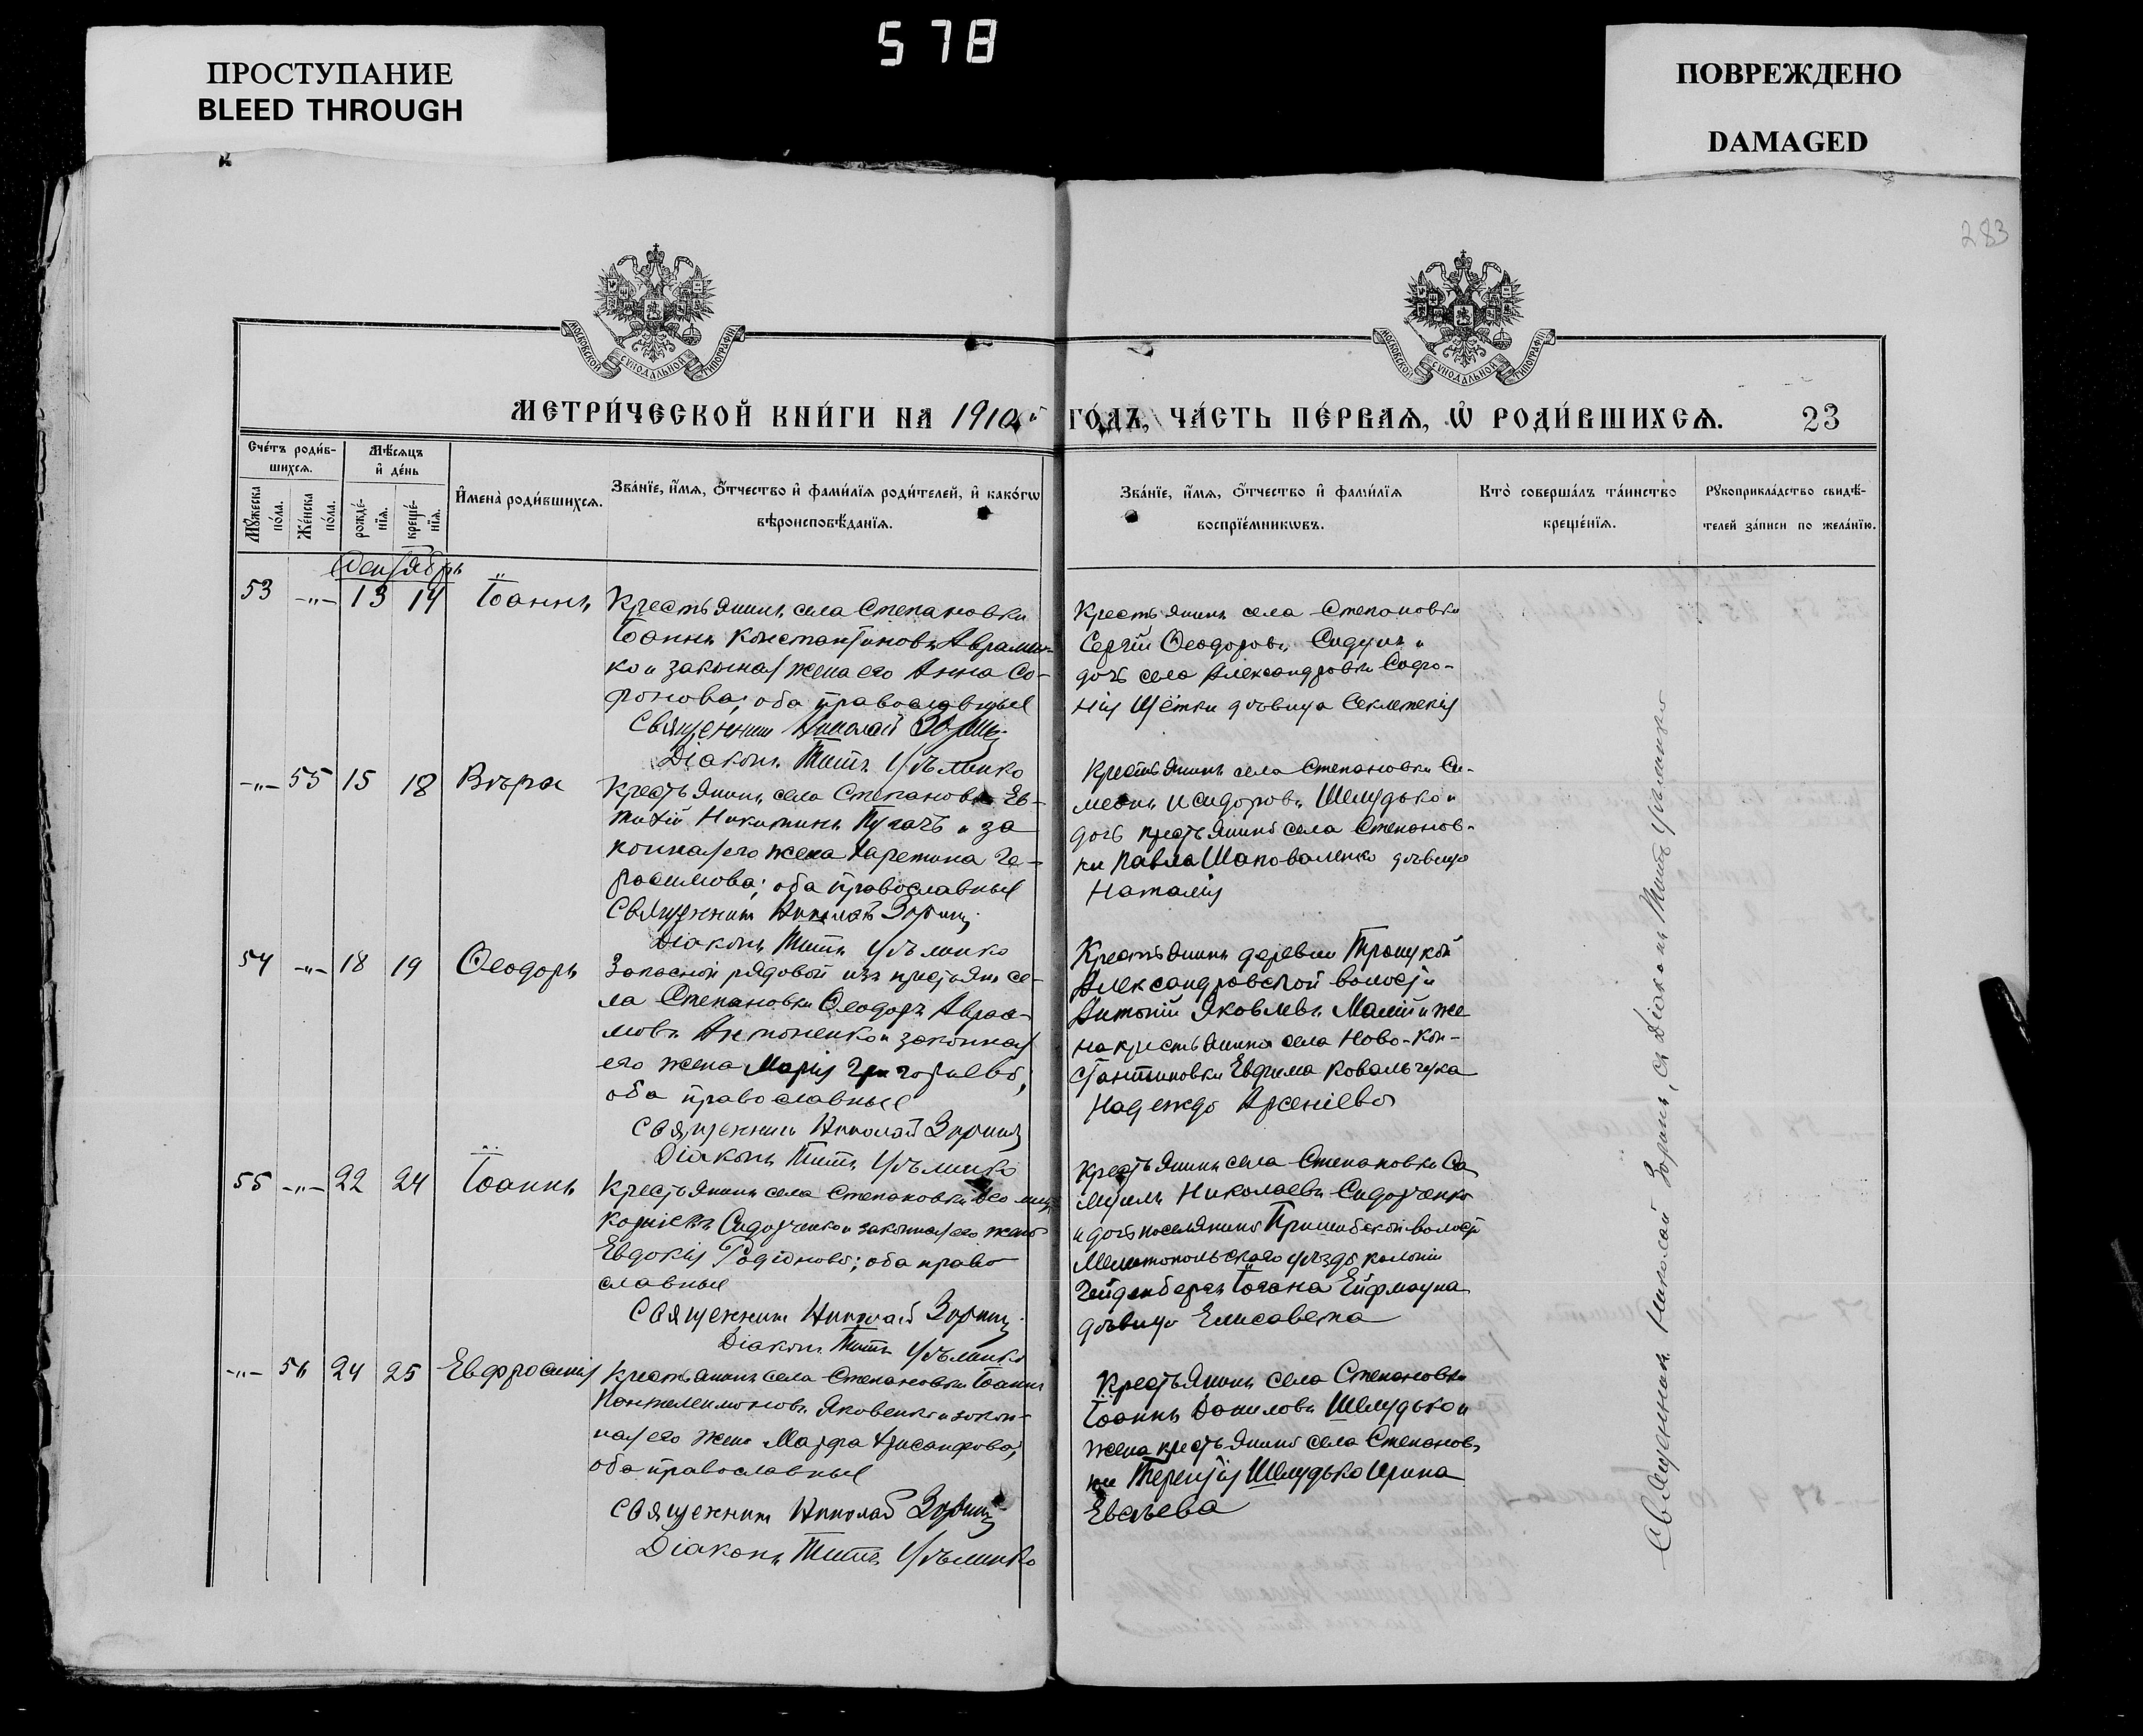 ПРОСТУПАНИЕ
BLEED THROUGH
578
ПОВРЕЖДЕНО
DAMAGED
283
МОСКОВСКОЙ СѴНОДАЛЬНОЙ ТИПОГРАФІИ
МОСКОВСКОЙ СѴНОДАЛЬНОЙ ТИПОГРАФІИ
МЕТРИ́ЧЕСКОЙ КНИ́ГИ НА 1910й ГО́ДЪ, ЧА́СТЬ ПЕ́РВАѦ, Ѡ҆ РОДИ́ВШИХСѦ. 23
Счетъ роди́в-
шихсѧ.
Мѣ́сѧцъ
и҆ де́нь
Мꙋжеска по́ла.
Же́нска по́ла.
рожде́-
нїѧ.
креще́-
нїѧ.
И҆мена̀ роди́вшихсѧ.
Зва́нїе, и҆́мѧ, ѻ҆́тчество и҆ фами́лїѧ роди́телей, и҆ како́гѡ
вѣроисповѣ́данїѧ.
Зва́нїе, и҆́мѧ, ѻ҆́тчество и҆ фами́лїѧ
воспрїе́мникѡвъ.
Кто̀ соверша́лъ та́инство
креще́нїѧ.
Рꙋкоприкла́дство свидѣ́-
телей за́писи по жела́нїю.
53 -"- 13 14 Іоаннъ
Крестьянинъ села Степановки
Іоаннъ Константиновъ Авраменко
ко и законная жена его Анна Со-
фронова; оба православные
Священникъ Николай Зоринъ
Діаконъ Титъ
Крестьянинъ села Степановки
Сергій Ѳеодоровъ и
дочь села Александровки Софро-
нія Щётки дѣвица Секлетекія
-"- 55 15 18 Вѣра
Крестьянинъ села Степановки Ев-
тихій Никитинъ Пугачъ и за
конная его жена Харетина Ге-
расимова; оба православные
Священникъ Николай Зоринъ
Діаконъ Титъ
Крестьянинъ села Степановки Си-
меонъ Исидоровъ Шелудько и
дочь крестьянина села Степанов-
ки Павла Шаповаленко дѣвица
Наталія
54 -"- 18 19 Ѳеодоръ
Запасной рядовой изъ крестьянъ се-
ла Степановки Ѳеодоръ Авраа-
мовъ Антоненко и законная
его жена Марія Григориева;
оба православные
Священникъ Николай Зоринъ
Діаконъ Титъ
Крестьянинъ деревни Троицкой
Александровской волости
Антоній Яковлевъ Малій и же
на крестьянина села Ново-Кон-
стантиновки Евфима Ковальчука
Надежда Арсеніева
55 -"- 22 24 Іоаннъ
Крестьянинъ села Степановки
Сидорченко и законная его жена
Евдокія Родіонова; оба право
славные
Священникъ Николай Зоринъ
Діаконъ Титъ
Крестьянинъ села Степановки Са
муилъ Николаевъ Сидорченко
и дочь поселянина Пришибской волости
Мелитопольскаго уѣзда колоніи
Гейденбергъ Іоганна
дѣвица Елисавета
-"- 56 24 25 Евфросинія
Крестьянинъ села Степановки Іоаннъ
Пантелеимоновъ Яковенко и закон-
ная его жена Марфа Хрисанфова;
оба православные
Священникъ Николай Зоринъ
Діаконъ Титъ
Крестьянинъ села Степановки
Іоаннъ Даниловъ Шелудько и
жена крестьянина села Степанов-
ки Терентія Шелудько Ирина
Священникъ Николай Зоринъ, съ Діакономъ Титъ